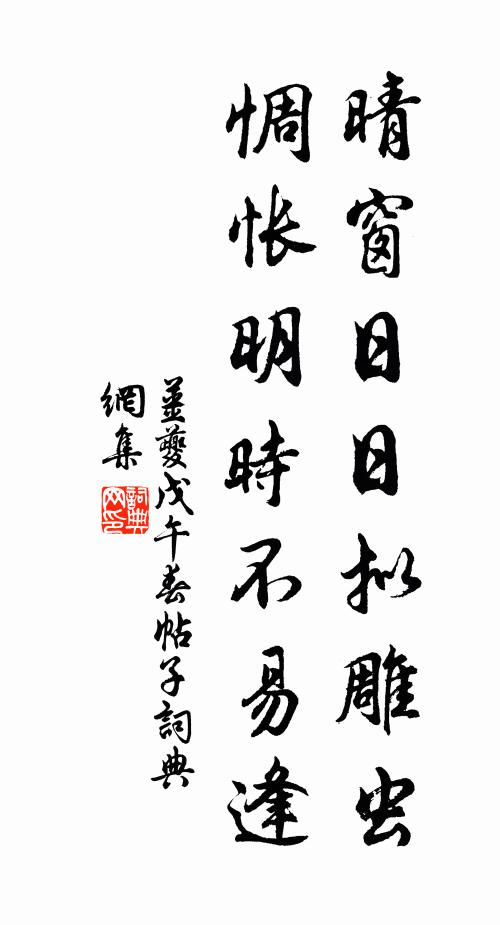 晴窗日日拟雕虫
惆怅明時不易逢
姜夔戊午春帖子詞典
網集
詞典
网印